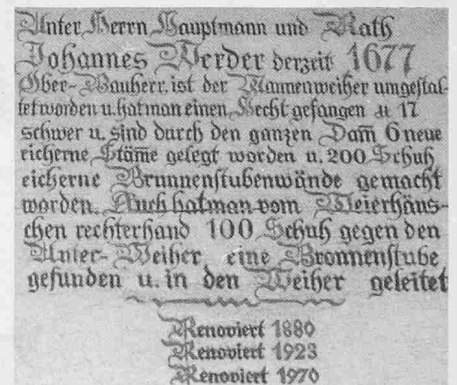 Unter Herrn Hauptmann und Rath
Johannes Werder derzeit 1677
Ober-Bauherr. ist der Wannenweiher umgestal-
tet worden u. hat man einen Hecht gefangen 17
schwer u. sind durch den ganzen Dam̄ 6 neue
eicherne Stäm̄e gelegt worden u. 200 Schuh
eicherne Brunnenstubenwände gemacht
worden. Auch hat man vom Weierhäus-
chen rechterhand 100 Schuh gegen den
Unter-Weiher eine Bronnenstube
gefunden u. in den Weiher geleitet
Renoviert 1880
Renoviert 1923
Renoviert 1970